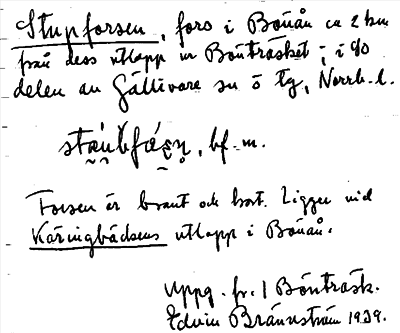 Stupforsen, fors i Bönån ca 2 km
från dess utlopp ur Bönträsket i
delen av Gällivare sn ö Tg, Norrb. l.
bf. m.
Forsen är brant och kort. Ligger vid
Käringbäckens utlopp i Bönån.
Uppg. fr. Bönträsk.
Edvin Brännström 1939.